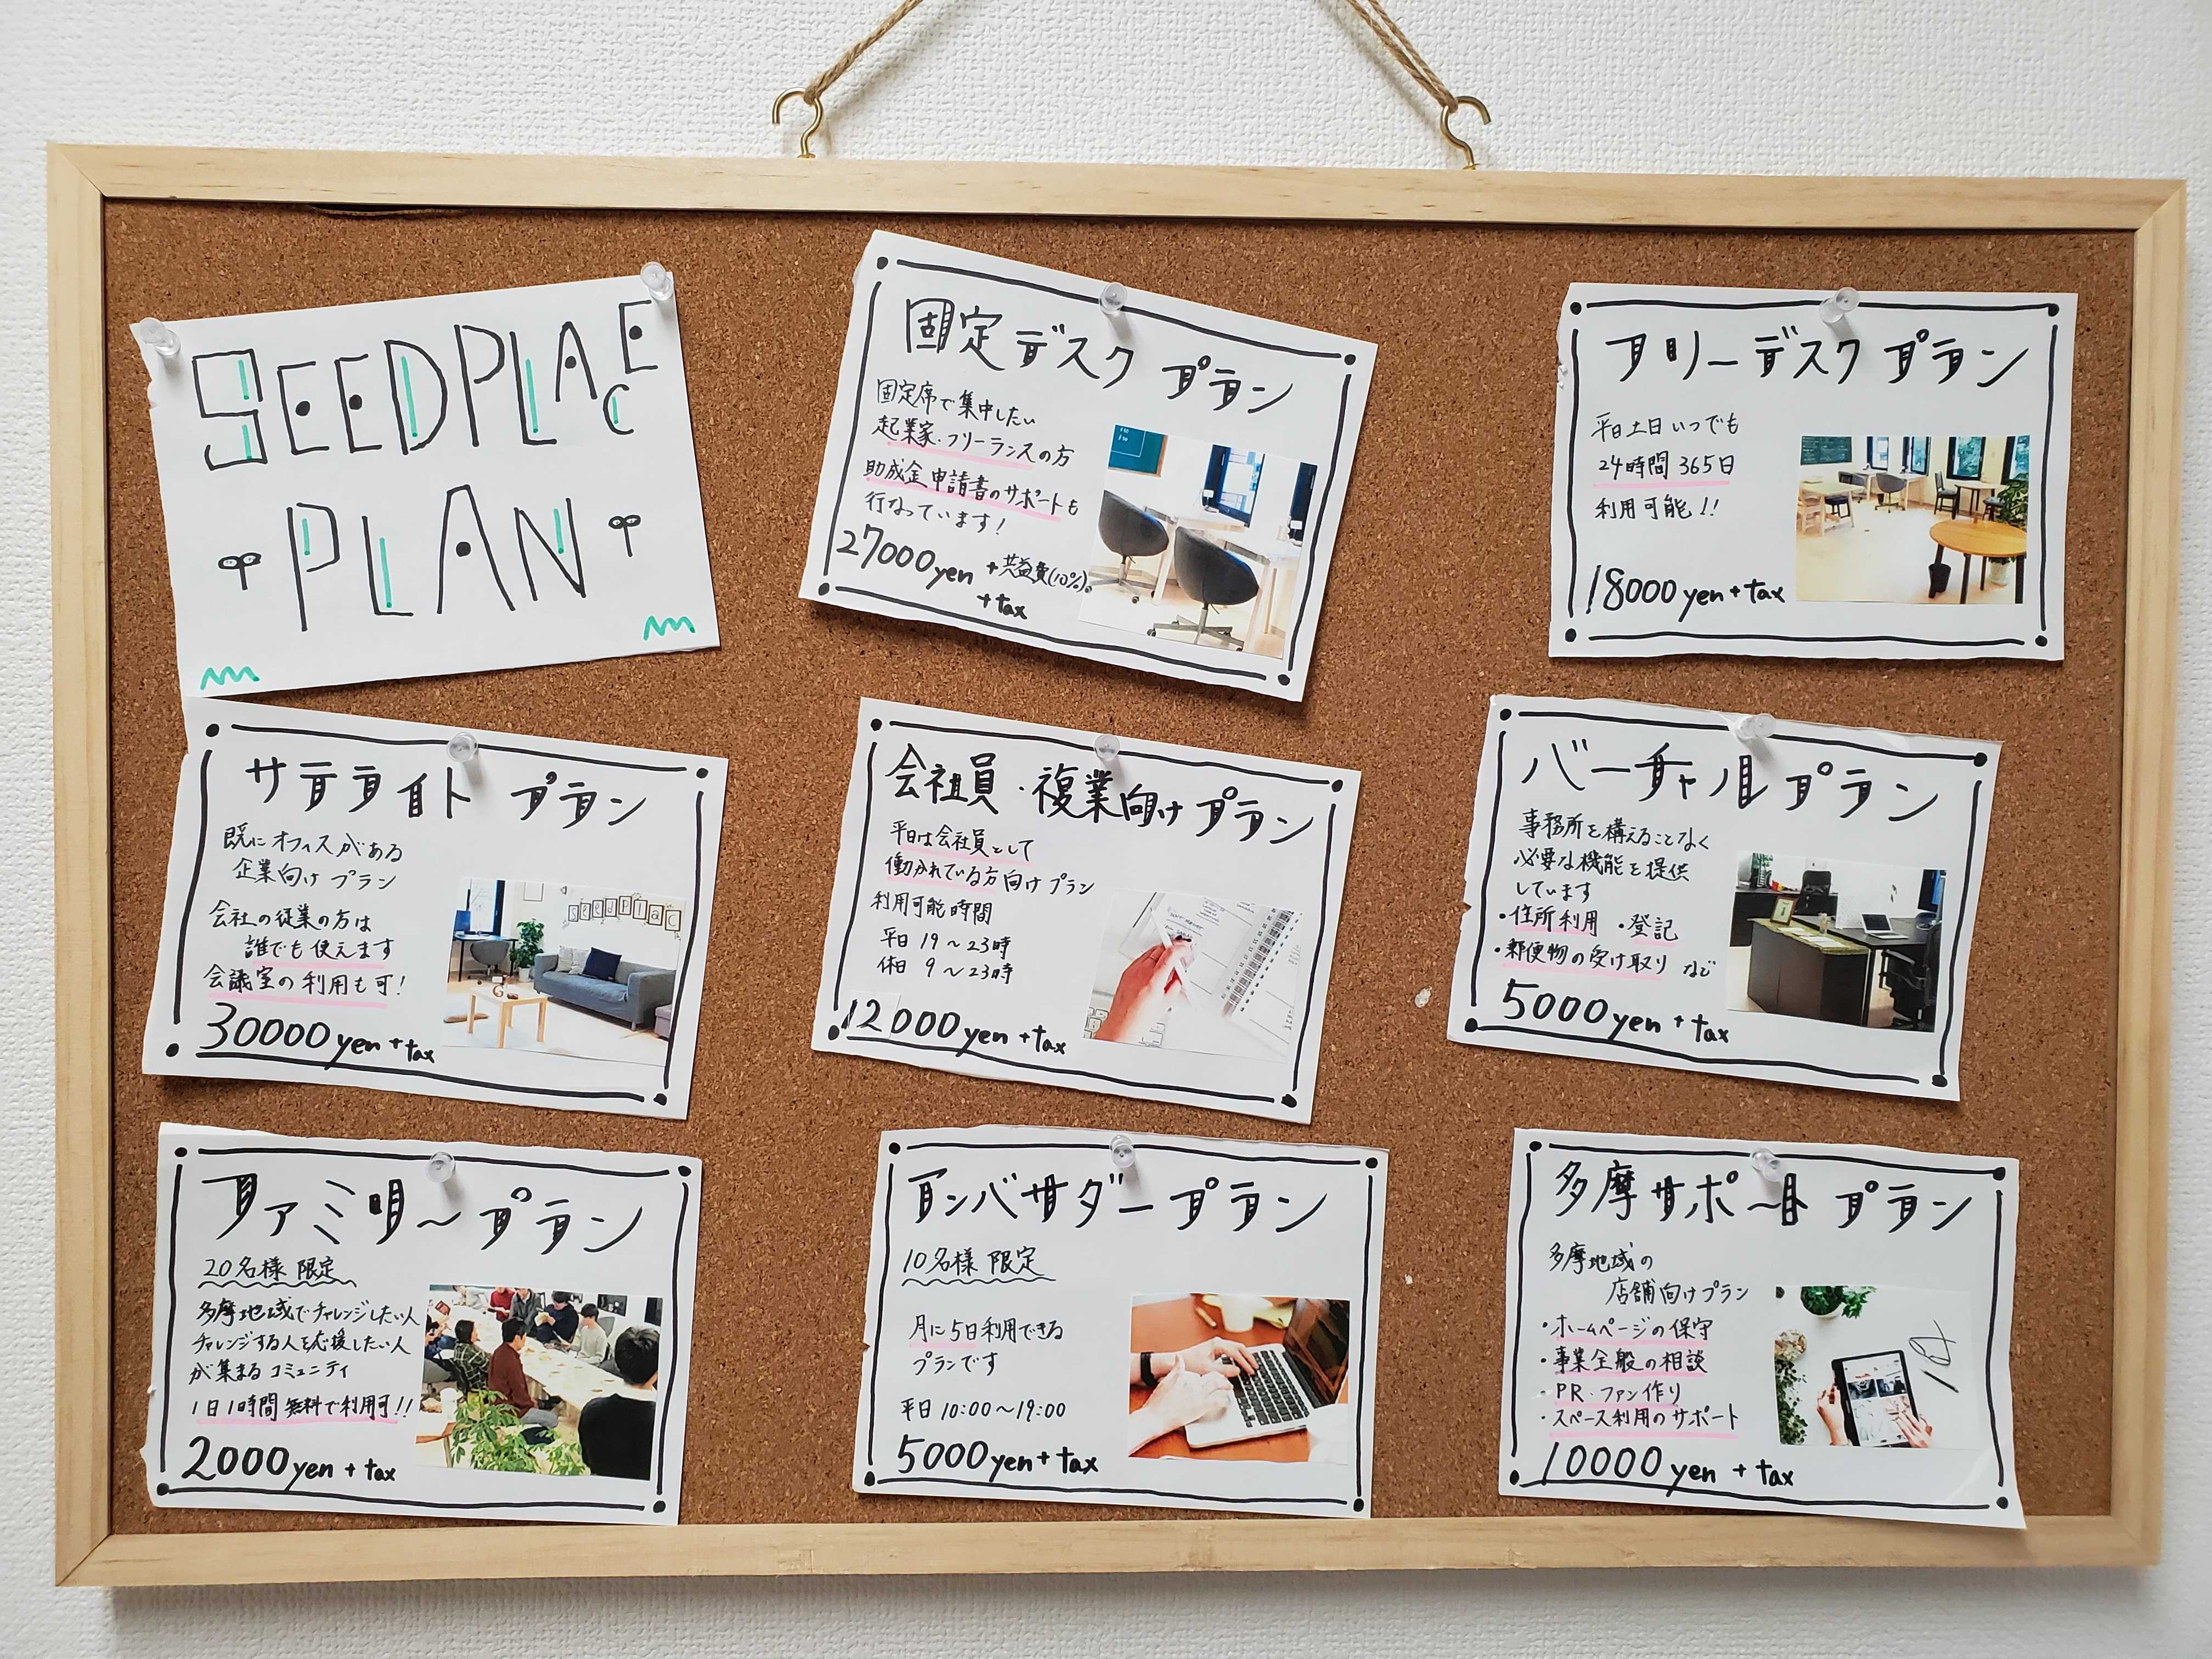 SEEDPLACE
PLAN
固定デスクプラン
固定席で集中したい
起業家・フリーランスの方
助成金申請書のサポートも
行なっています!
27000yen +共益費(10%)。
+tax
フリーデスクプラン
平日土日いつでも
24時間 365日
利用可能!!
18000yen+tax
サテライトプラン
既にオフィスがある
企業向けプラン
会社の従業の方は
誰でも使えます
会議室の利用も可!
30000yen+tax
会社員・複業向けプラン
平日は会社員として
働かれている方向けプラン
利用可能時間
平日 19~23時
休日 9~23時
12000yen+tax
バーチャルプラン
事務所を構えることなく
必要な機能を提供
しています
・住所利用 ・登記
・郵便物の受け取り など
5000yen+tax
ファミリ~プラン
20名様 限定
多摩地域でチャレンジしたい人
チャレンジする人を応援したい人
が集まるコミュニティ
1日1時間無料で利用可!!
2000yen+tax
アンバサダープラン
10名様 限定
月に5日利用できる
プランです
平日 10:00~19:00
5000yen+tax
多摩サポ~トプラン
多摩地域の
店舗向けプラン
・ホームページの保守
・事業全般の相談
・PR・ファン作り
・スペース利用のサポート
10000yen+tax